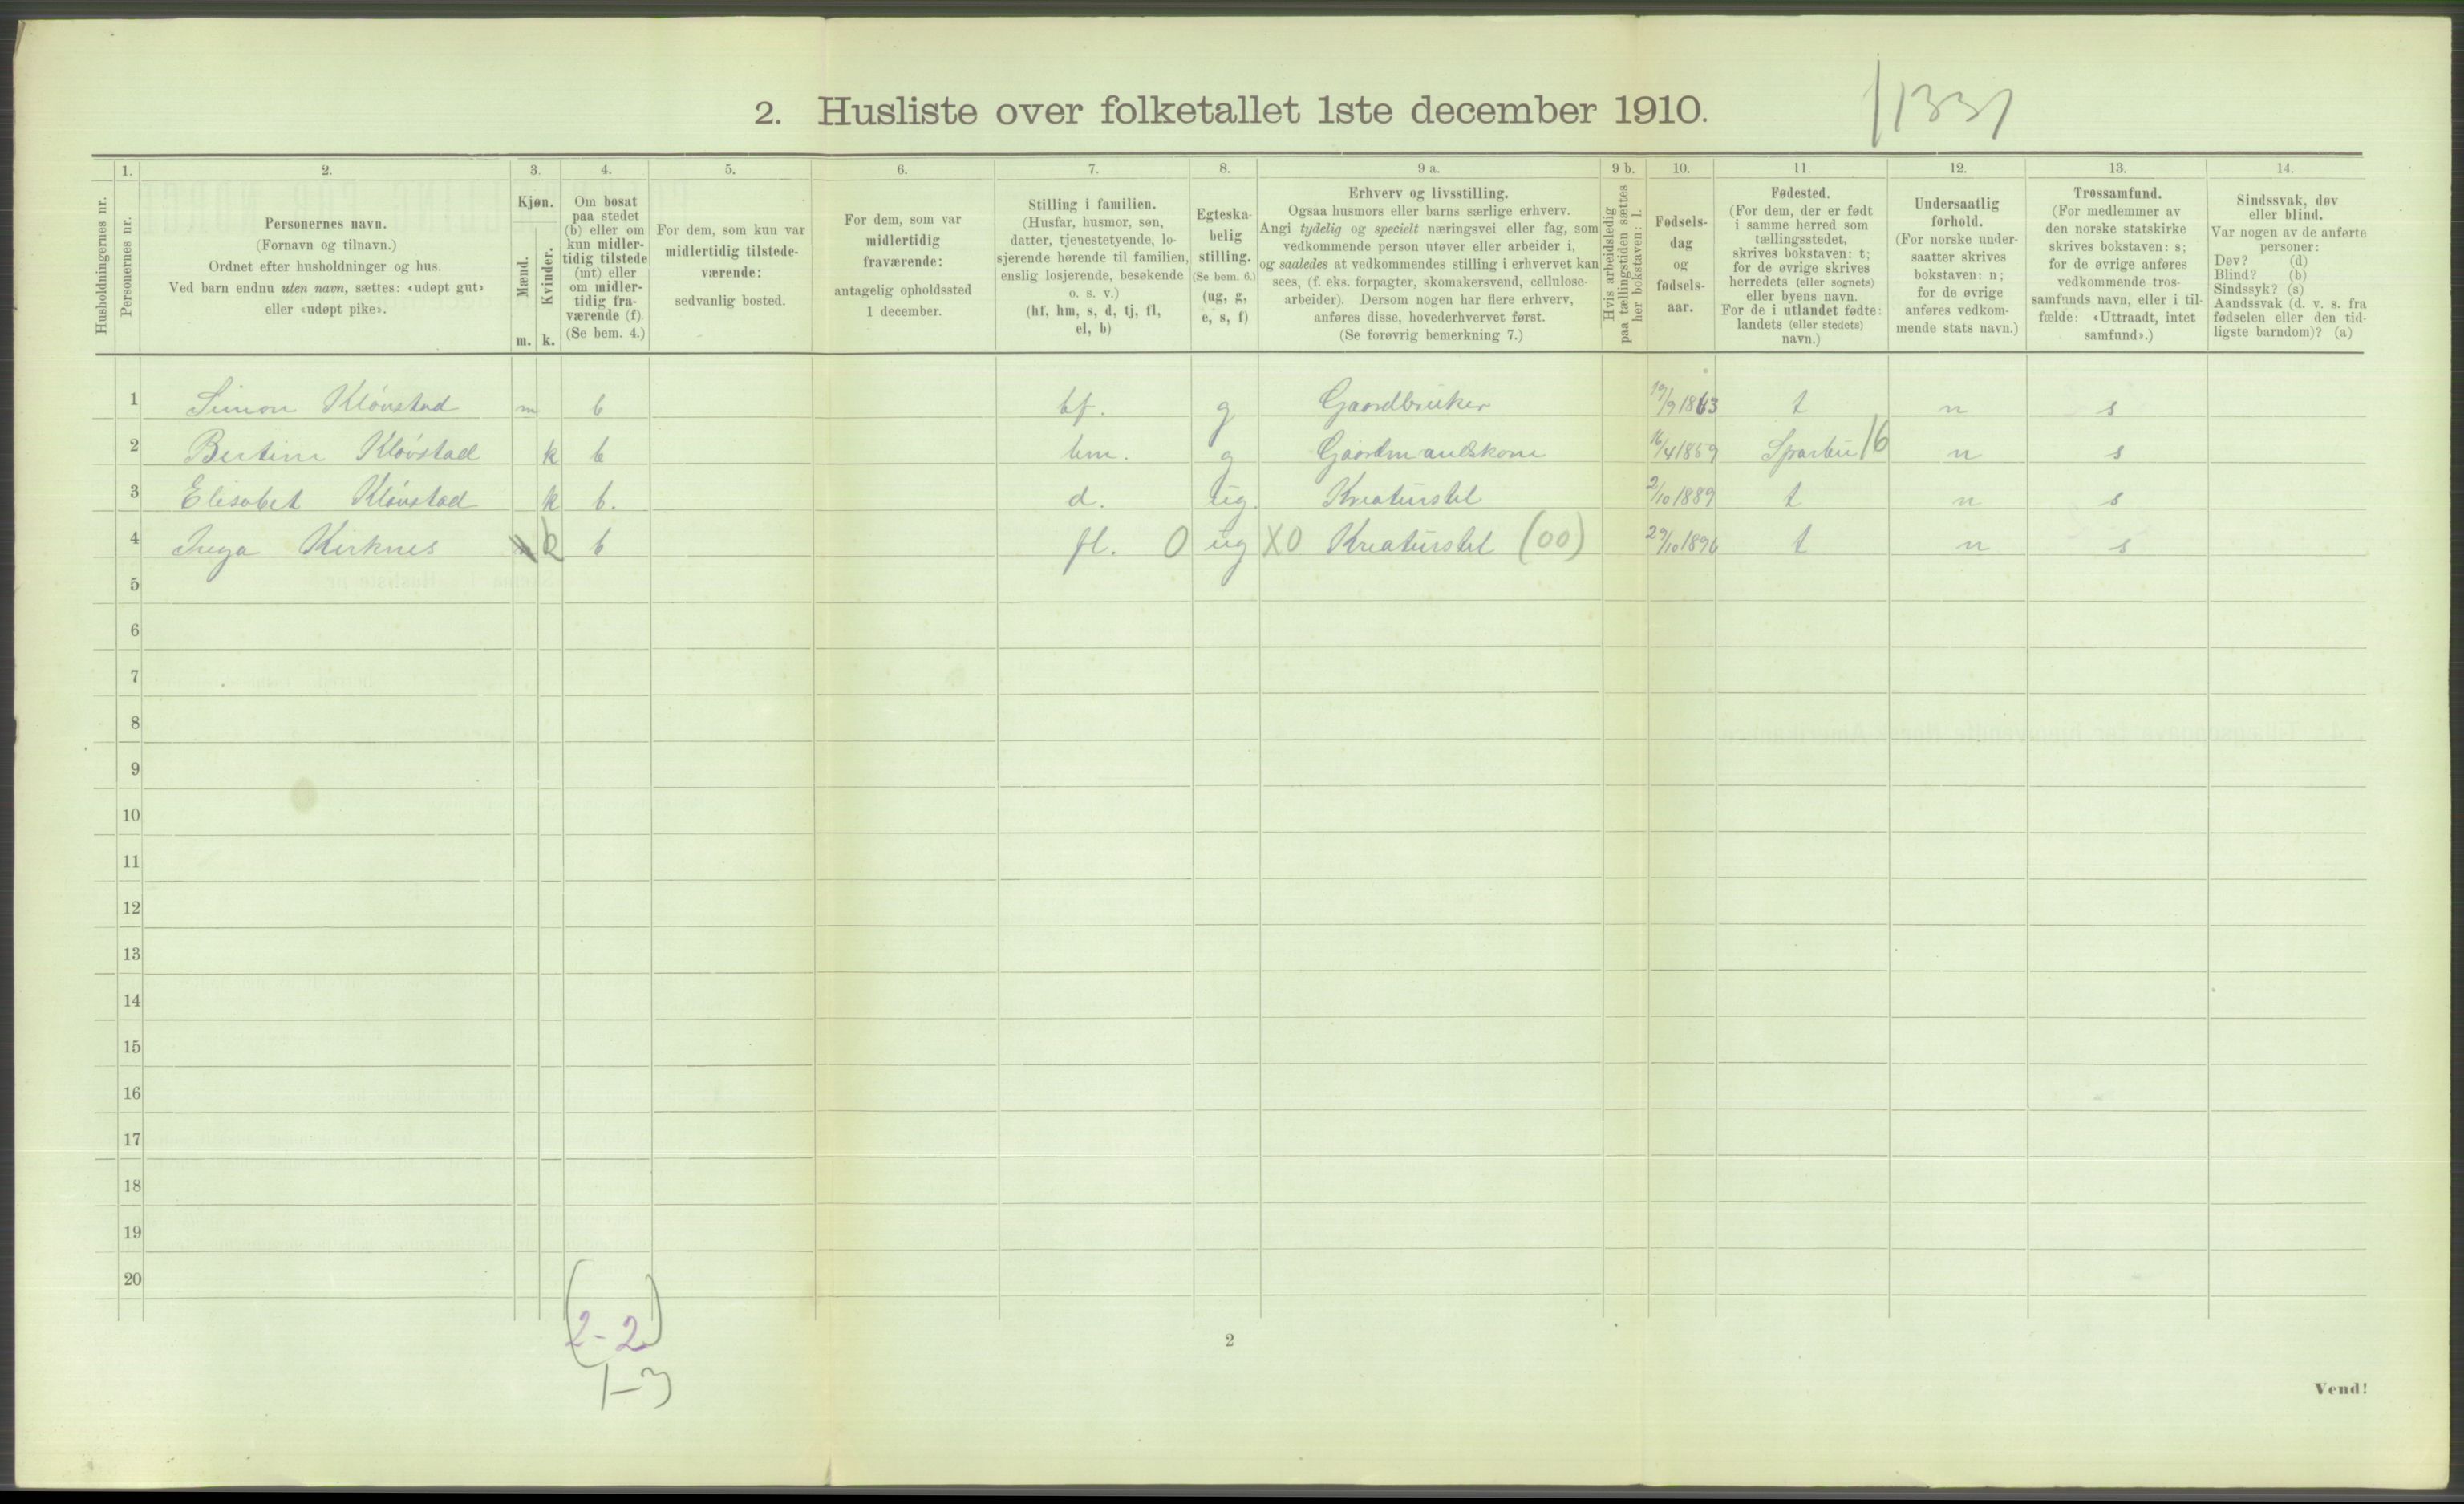 2. Husliste over folketallet 1ste december 1910.
1331
1. 2. 3. 4. 5. 6. 7. 8. 9 a. 9 b. 10. 11. 12. 13. 14.
Husholdningernes nr.
Personernes nr.
Personernes navn.
(Fornavn og tilnavn.)
Ordnet efter husholdninger og hus.
Ved barn endnu uten navn, sættes: «udøpt gut»
eller «udøpt pike».
Kjøn.
Mænd.
Kvinder.
m. k.
Om bosat
paa stedet
(b) eller om
kun midler-
tidig tilstede
(mt) eller
om midler-
tidig fra-
værende (f).
(Se bem. 4.)
For dem, som kun var
midlertidig tilstede-
værende:
sedvanlig bosted.
For dem, som var
midlertidig
fraværende:
antagelig opholdssted
1 december.
Stilling i familien.
(Husfar, husmor, søn,
datter, tjenestetyende, lo-
sjerende hørende til familien,
enslig losjerende, besøkende
o. s. v.)
(hf, hm, s, d, tj, fl,
el, b)
Egteska-
belig
stilling.
(Se bem. 6.)
(ug, g,
e, s, f)
Erhverv og livsstilling.
Ogsaa husmors eller barns særlige erhverv.
Angi tydelig og specielt næringsvei eller fag, som
vedkommende person utøver eller arbeider i,
og saaledes at vedkommendes stilling i erhvervet kan
sees, (f. eks. forpagter, skomakersvend, cellulose-
arbeider). Dersom nogen har flere erhverv,
anføres disse, hovederhvervet først.
(Se forøvrig bemerkning 7.)
Hvis arbeidsledig
paa tællingstiden sættes
her bokstaven: l.
Fødsels-
dag
og
fødsels-
aar.
Fødested.
(For dem, der er født
i samme herred som
tællingsstedet,
skrives bokstaven: t;
for de øvrige skrives
herredets (eller sognets)
eller byens navn.
For de i utlandet fødte:
landets (eller stedets)
navn.)
Undersaatlig
forhold.
(For norske under-
saatter skrives
bokstaven: n;
for de øvrige
anføres vedkom-
mende stats navn.)
Trossamfund.
(For medlemmer av
den norske statskirke
skrives bokstaven: s;
for de øvrige anføres
vedkommende tros-
samfunds navn, eller i til-
fælde: «Uttraadt, intet
samfund».)
Sindssvak, døv
eller blind.
Var nogen av de anførte
personer:
Døv? (d)
Blind? (b)
Sindssyk? (s)
Aandssvak (d. v. s. fra
fødselen eller den tid-
ligste barndom)? (a)
1 Simon Kløvstad m b hf. g Gaardbruker 19/9 1863 t n s
2 Bertine Kløvstad k b hm. g Gaardmandskone 16/4 1859 Sparbu 16 n s
3 Elisabet Kløvstad k b. d. ug. Kreaturstel 2/10 1889 t n s
4 Inga Kirknes k b fl. 0 ug X0 Kreaturstel (00) 29/10 1896 t n s
5
6
7
8
9
10
11
12
13
14
15
16
17
18
19
20
(2-2)
1-3
2
Vend!